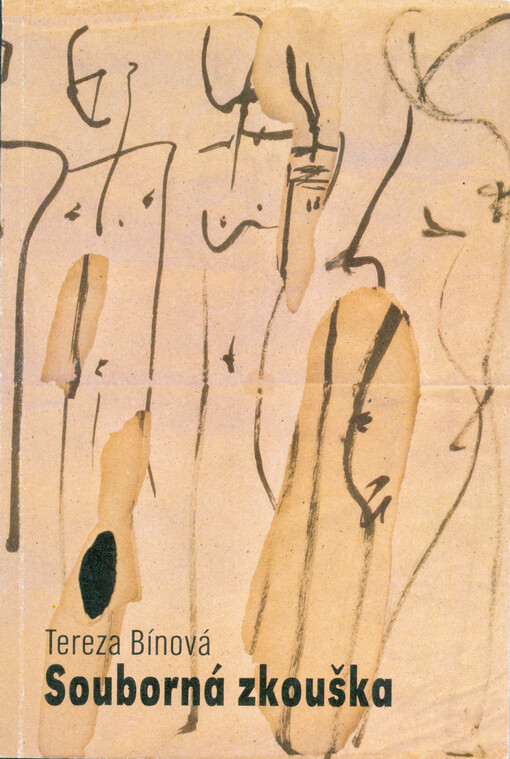 Tereza Bínová
Souborná zkouška